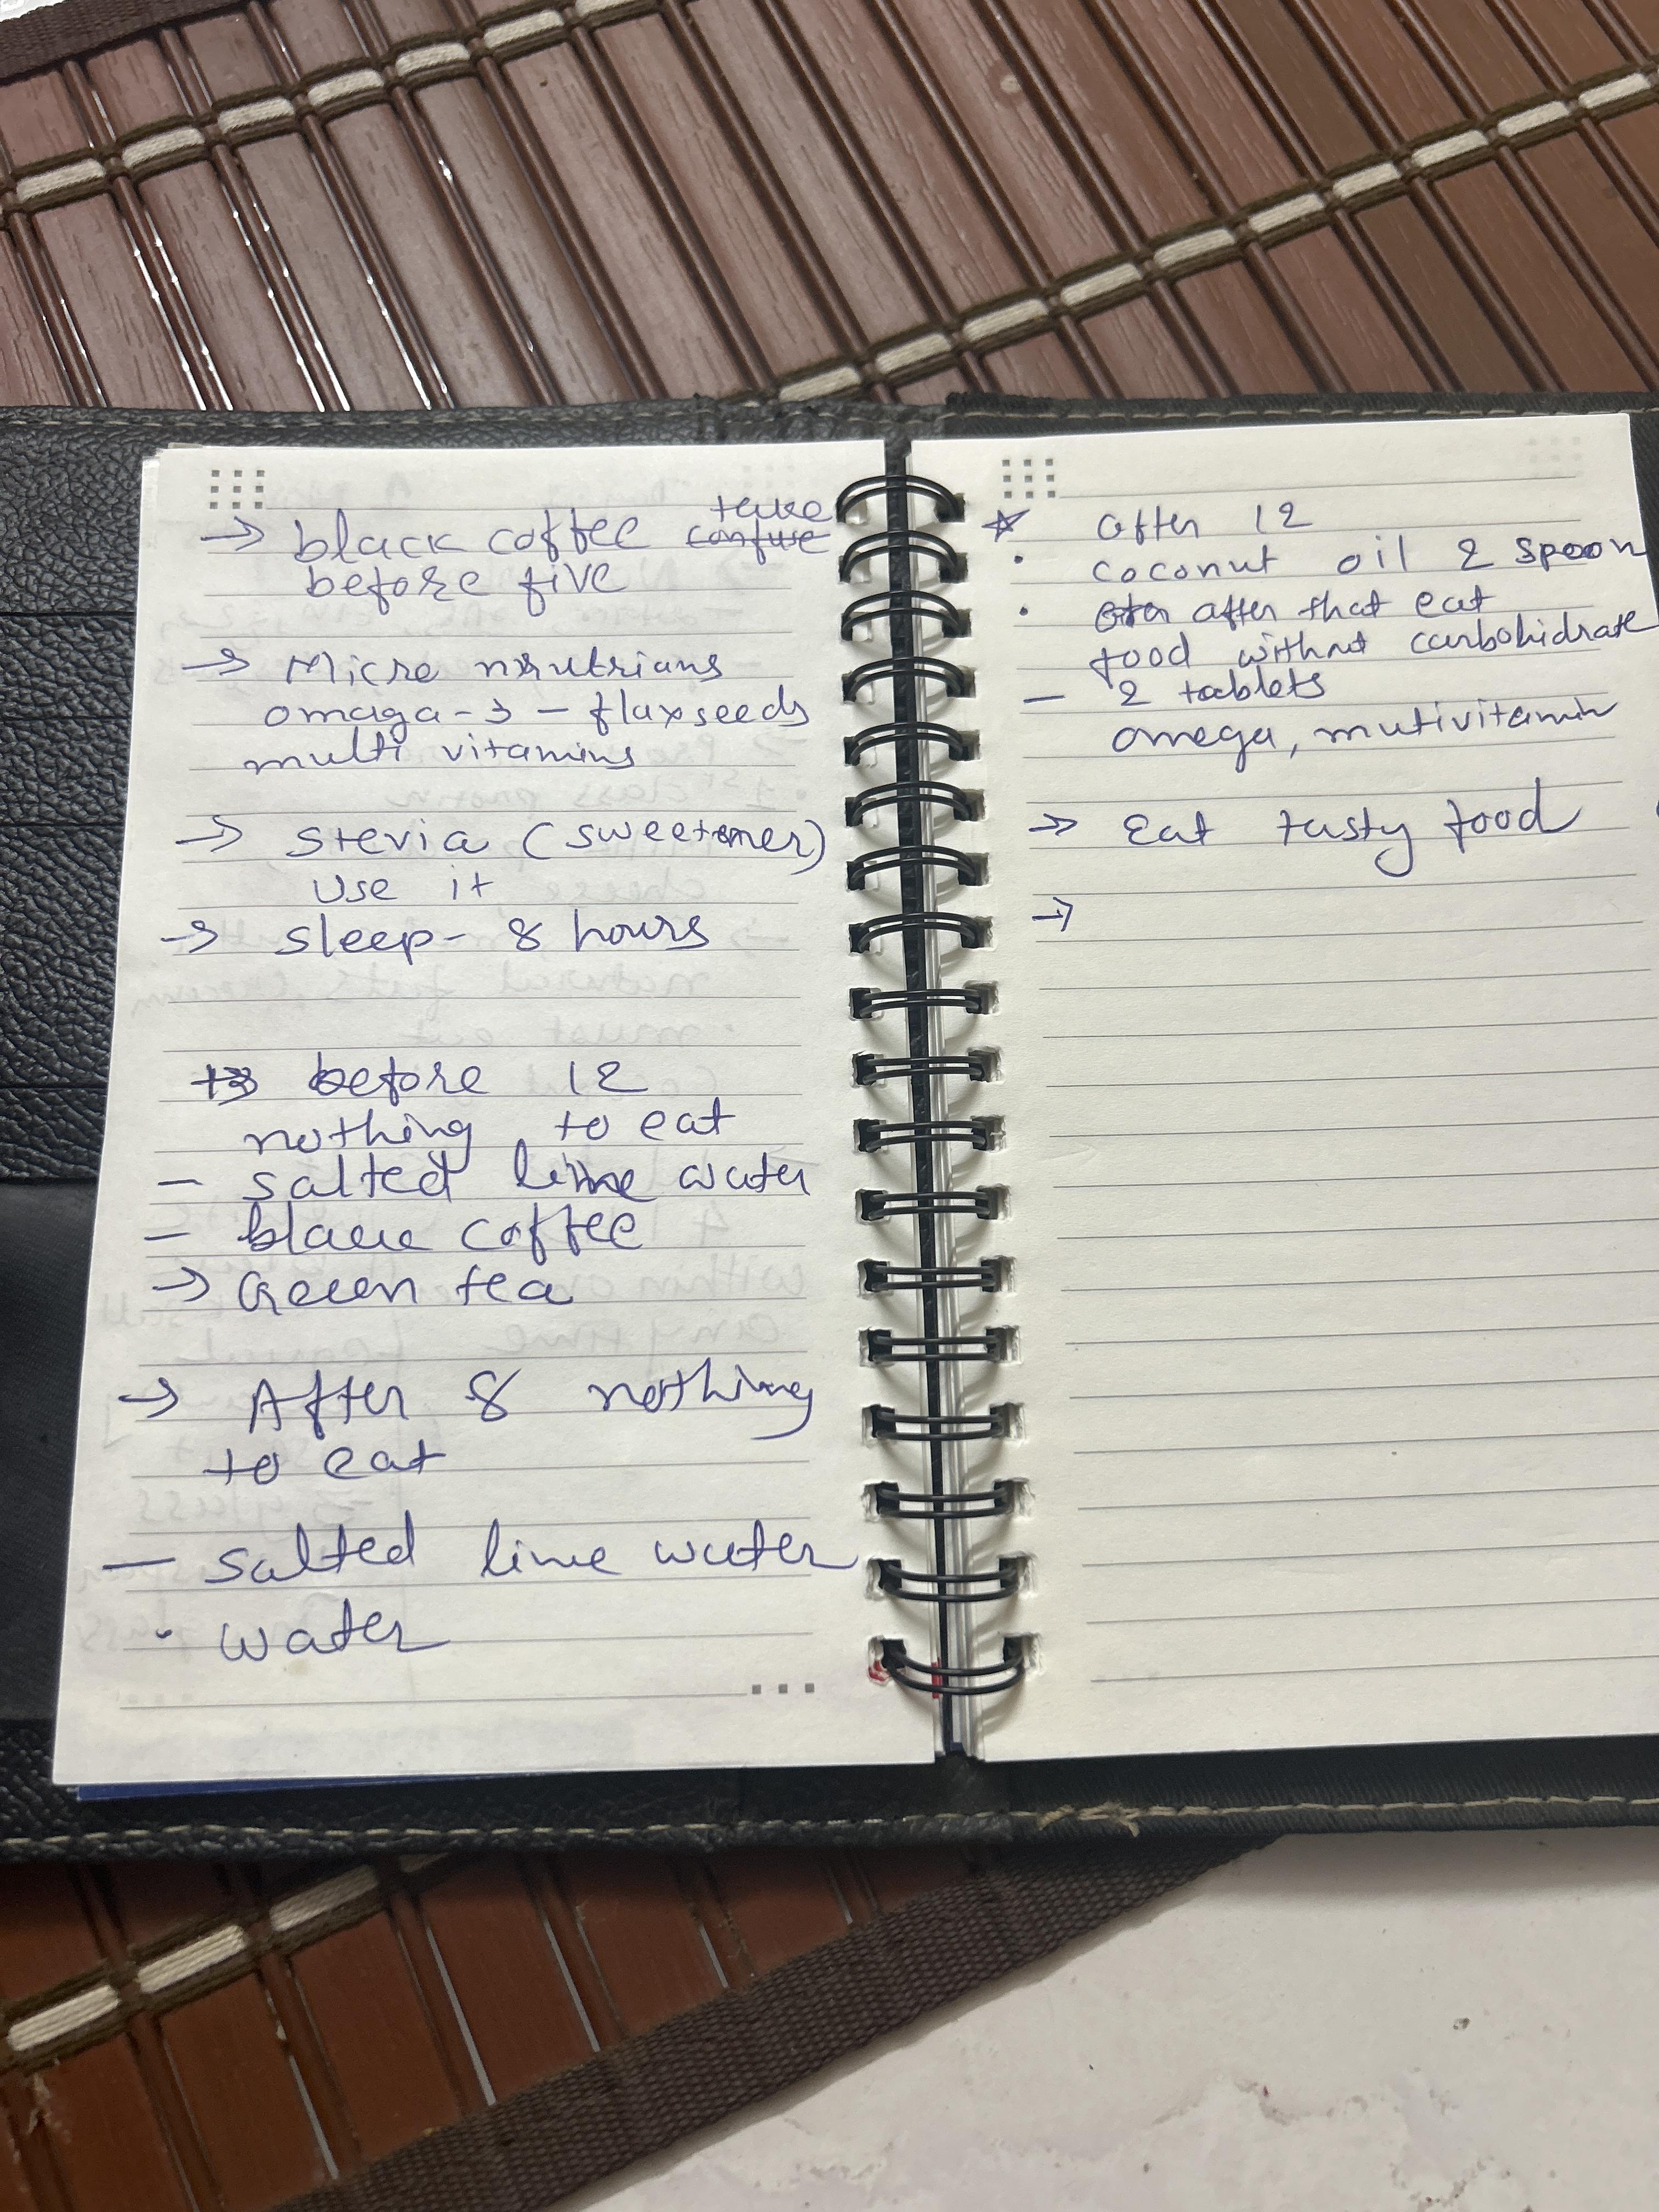 → black coffee take
before five
→ Micro nutrians
omaga-3 - flaxseeds
multi vitamins
→ stevia (sweetener)
use it
→ sleep - 8 hours
before 12
nothing to eat
- salted lime water
- blacke coffee
→ Green tea
→ After 8 nothing
to eat
- salted lime water
· water
☆ after 12
· coconut oil 2 spoon
· after that eat
food without carbohidrate
- 2 tablets
omega, mutivitamin
→ Eat tasty food
→